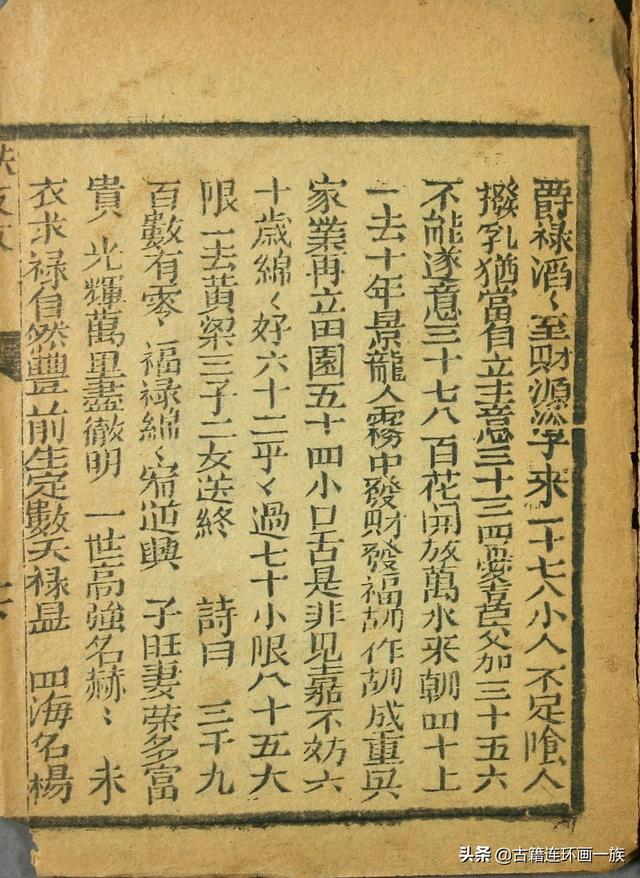 爵禄滔〻至財源子来二十七八小人不足陰人
撥乳猶當自立主意三十三四加三十五六
不能遂意三十七八百花開放萬水来朝四十上
一去十年景龍人霧中發財發福胡作胡成重兴
家業再立田園五十四小口舌是非见嘉不妨六
十歲綿〻好六十二乎〻過七十小限八十五大
限一去黃梁三子二女送終 詩曰 三千九
百數有零〻福禄綿〻道興 子旺妻荣多富
貴 光輝萬里盡徹明 一世高強名赫〻 未
衣求禄自然豊前生定數天禄显 四海名楊
头条 @古籍连环画一族